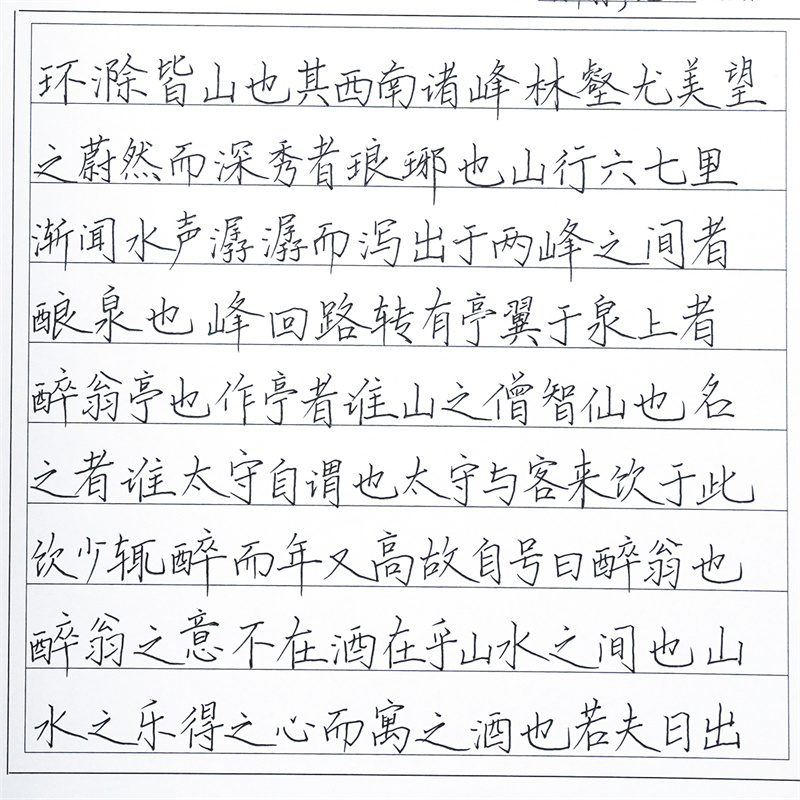 环滁皆山也其西南诸峰林壑尤美望
之蔚然而深秀者琅琊也山行六七里
渐闻水声潺潺而泻出于两峰之间者
酿泉也峰回路转有亭翼于泉上者
醉翁亭也作亭者谁山之僧智仙也名
之者谁太守自谓也太守与客来饮于此
饮少辄醉而年又高故自号曰醉翁也
醉翁之意不在酒在乎山水之间也山
水之乐得之心而寓之酒也若夫日出